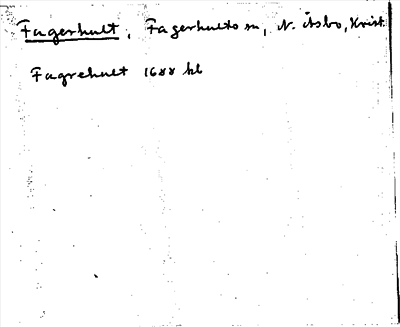 Fagerhult, Fagerhults sn, N. Åsbo, Krist.
Fagrehult 1688 kl